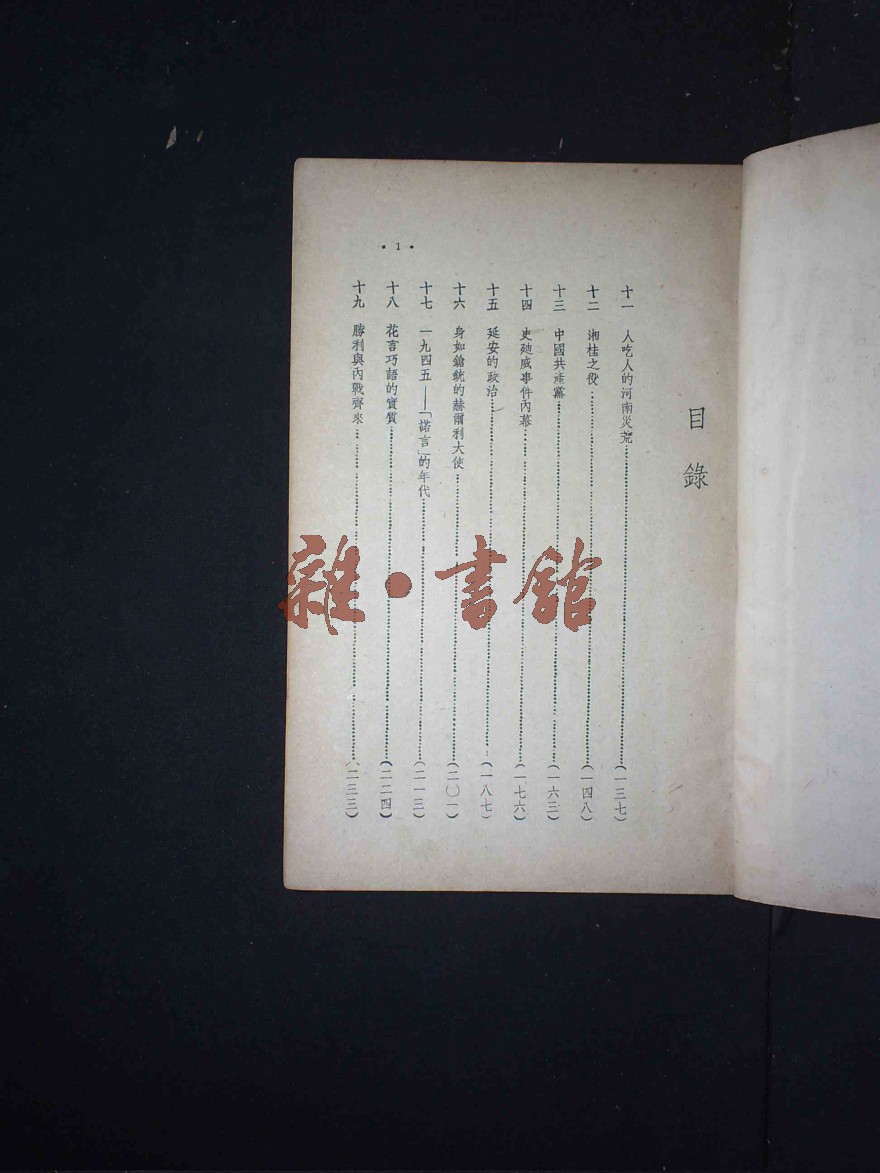 目錄
十一 人吃人的河南災荒……(一三七)
十二 湘桂之役……(一四八)
十三 中國共產黨……(一六三)
十四 史廸威事件內幕……(一七六)
十五 延安的政治……(一八七)
十六 身如鎗銃的赫爾利大使……(二〇一)
十七 一九四五——「諾言」的年代……(二一三)
十八 花言巧語的實質……(二二四)
十九 勝利與內戰齊來……(二三三)
• 1 •
雜•書館